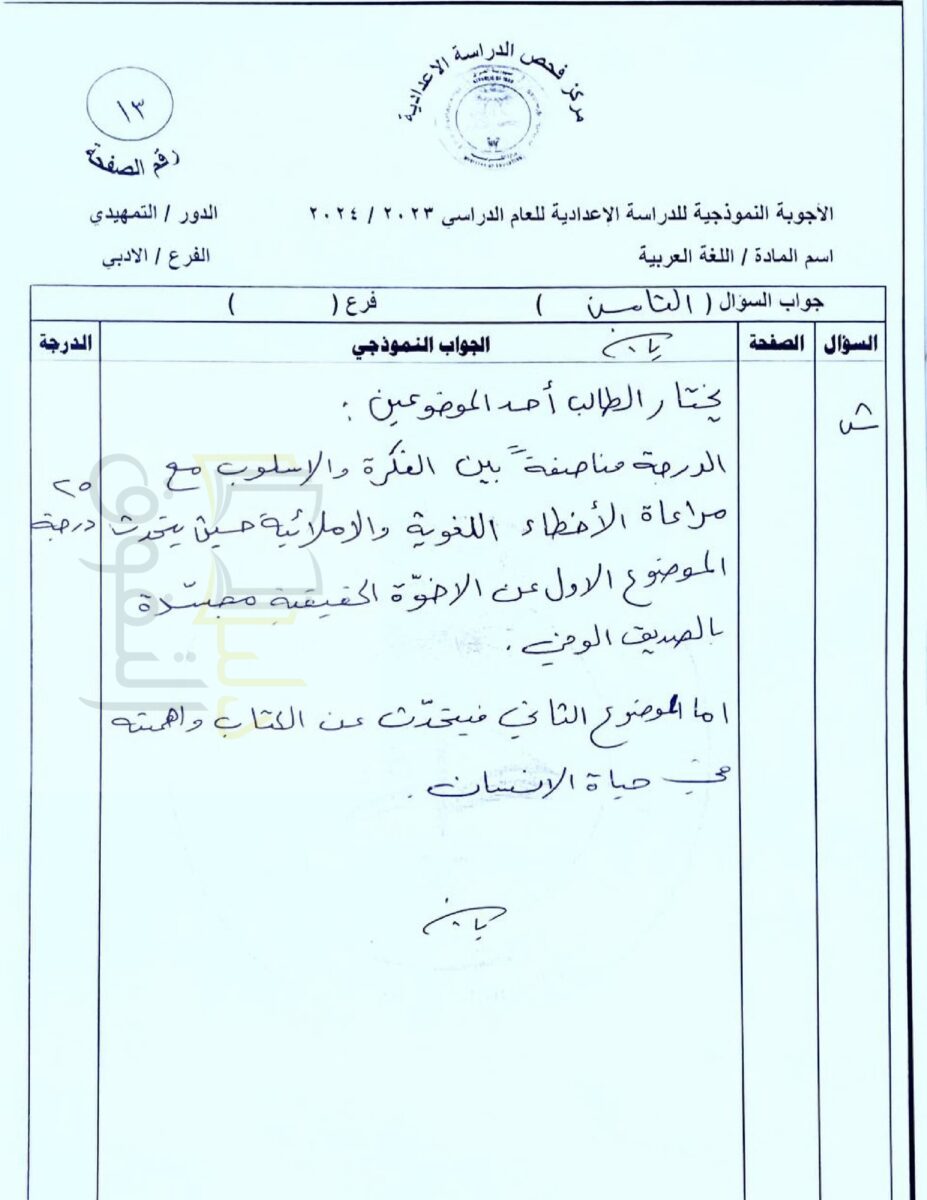 مركز فحص الدراسة الاعدادية
١٣
رقم الصفحة
الأجوبة النموذجية للدراسة الإعدادية للعام الدراسي ٢٠٢٣ / ٢٠٢٤
الدور / التمهيدي
اسم المادة / اللغة العربية
الفرع / الادبي
جواب السؤال ( الثامن ) فرع ( )
السؤال الصفحة الجواب النموذجي الدرجة
يختار الطالب أحد الموضوعين :
الدرجة مناصفةً بين الفكرة والاسلوب مع
٢٥
مراعاة الأخطاء اللغوية والاملائية حيث يتحدث
درجة
الموضوع الاول عن الاخوّة الحقيقية مجسّدة
بالصديق الوفي .
اما الموضوع الثاني فيتحدّث عن الكتاب واهمته
في حياة الانسان .